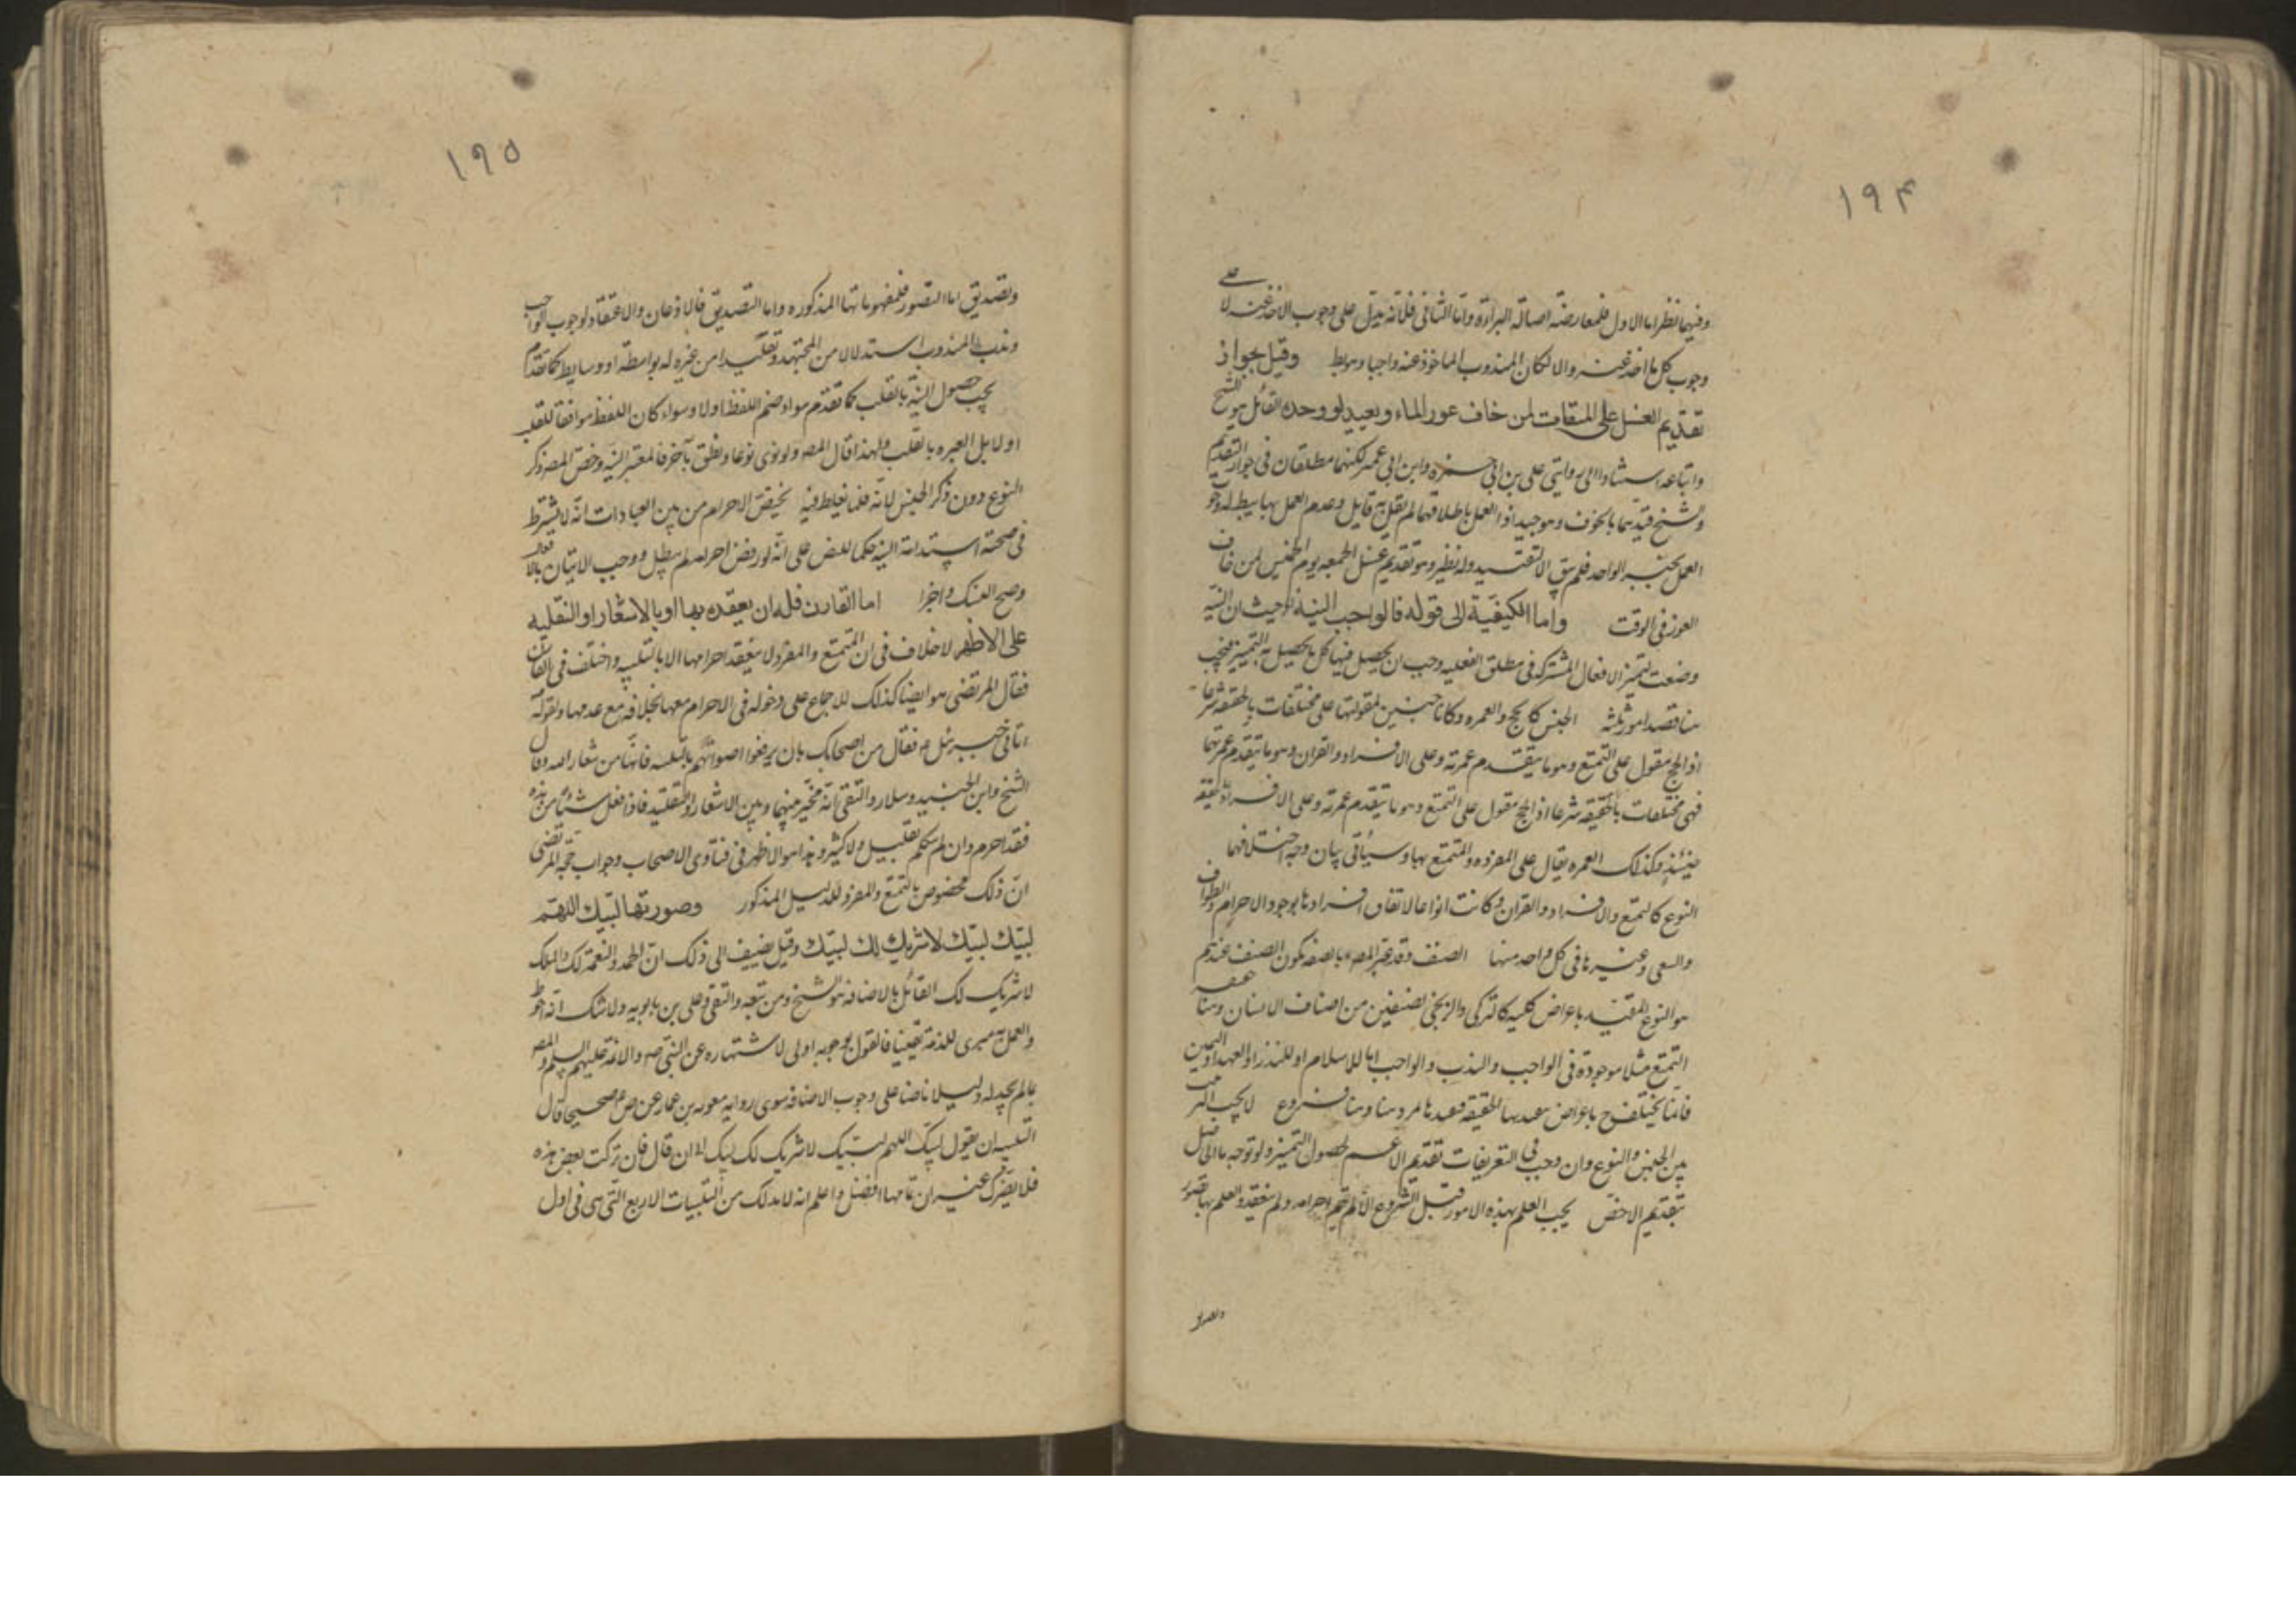 ١٩۴
وفيهما نظر اما الاول فلمعارضته اصالة البراءة واما الثانى فلانه يدل على وجوب الاخذ عنه لا على
وجوب كل ما اخذ عنه والا لكان المندوب الماخوذ عنه واجبا وهو بط وقيل بجواز
تقديم الغسل على الميقات لمن خاف عوز الماء ويعيد لو وجده القائل هو الشيخ
واتباعه استنادا الى روايتى على بن ابى حمزه وابن ابى عمير لكنهما مطلقتان فى جواز التقديم
والشيخ قيدهما بالخوف وهو جيد اذ العمل باطلاقهما لم يقل به قايل وعدم العمل بهما يبطله وجوب
العمل بخبر الواحد فلم يبق الا التقييد وله نظير وهو تقديم غسل الجمعه يوم الخميس لمن خاف
العوز فى الوقت واما الكيفية الى قوله فالواجب النية حيث ان النيه
وضعت لتميز الافعال المشتركه فى مطلق الفعليه وجب ان يحصل فيها كل ما يحصل به التميز فيجب
هنا قصد امور ثلثه الجنس كالحج والعمره وكانا جنسين لمقوليتهما على مختلفات بالحقيقه شرعا
اذ الحج مقول على التمتع وهو ما يتقدم عمرته وعلى الافراد والقران وهو ما يتقدم عمرتهما
فهى مختلفات بالحقيقه شرعا اذ الحج مقول على التمتع وهو ما يتقدم عمرته وعلى الافراد
حينئذ وكذلك العمره يقال على المفرده والمتمتع بها وسيأتى بيان وجه اختلافهما
النوع كالتمتع والافراد والقران وكانت انواعا لاتفاق افرادها بوجود الاحرام والطواف
والسعى وغيرها فى كل واحد منها الصنف وقد عبر المصـ بالصفه لكون الصنف عندهم
هو النوع المقيد باعراض كليه كالتركى والزنجى لصنفين من اصناف الانسان وهنا حقيقه
التمتع مثلا موجودة فى الواجب والندب والواجب اما للاسلام او للنذر او العهد او اليمين
فانما يختلف باعراض بعدها هنا فروع لا يجب الترتيب
بين الجنس والنوع وان وجب فى التعريفات تقديم الاعم لحصول التميز ولو توجه ما الى
بتقديم الاخص يجب العلم بهذه الامور قبل الشروع والا لم يتم احرامه ولم ينعقد والعلم بها تصور
وتصديق
١٩٥
وتصديق اما التصور فلمفهوماتها المذكوره واما التصديق فالاذعان والاعتقاد لوجوب الواجب
وندب المندوب استدلالا من المجتهد وتقليدا من غيره له بواسطة او وسايط كما تقدم
يجب حصول النية بالقلب كما تقدم سواء ضم اللفظ او لا وسواء كان اللفظ موافقا للقلب
او لا بل العبره بالقلب ولهذا قال المصـ ولو نوى نوعا ونطق بآخر فالمعتبر النيه وخص المصـ ذكر
النوع دون ذكر الجنس لانه قلما يغلط فيه يختص الاحرام من بين العبادات انه لا يشترط
فى صحته استدامة النيه حكما للنص على انه لو رفض احرامه لم يبطل ووجب الاتيان بالافعال
وصح النسك واجزا اما القارن فله ان يعقده بها او بالاشعار او التقليد
على الاظهر لا خلاف فى ان المتمتع والمفرد لا ينعقد احرامهما الا بالتلبيه واختلف فى القارن
فقال المرتضى هو ايضا كذلك للاجماع على دخوله فى الاحرام معها بخلافه مع عدمها ولقوله
اتانى جبرئيل فقال مر اصحابك بان يرفعوا اصواتهم بالتلبيه فانها من شعار الله وقال
الشيخ وابن الجنيد وسلار والتقى انه مخير بينها وبين الاشعار او التقليد فاذا فعل شيئا من هذه
فقد احرم وان لم يتكلم بقليل ولا كثير وهذا هو الاظهر فى فتاوى الاصحاب وجواب حجة المرتضى
ان ذلك مخصوص بالتمتع والمفرد للدليل المذكور وصورتها لبيك اللهم
لبيك لبيك لا شريك لك لبيك وقيل يضيف الى ذلك ان الحمد والنعمة لك والملك
لا شريك لك القائل بالاضافه هو الشيخ ومن تبعه والتقى وعلى بن بابويه ولا شك انه احوط
والعمل به مبرى للذمة يقينا فالقول بوجوبه اولى لاشتهاره عن النبى صـ والائمة عليهم السلم والمصـ
عالم يجد له دليلا ناصا على وجوب الاضافه سوى روايه معويه بن عمار عن ص ع صحيحا قال
التلبيه ان يقول لبيك اللهم لبيك لا شريك لك لبيك الى ان قال فان تركت بعض هذه
فلا يضرك غير ان تمامها افضل واعلم انه لا بد لك من التلبيات الاربع التى هى فى اول